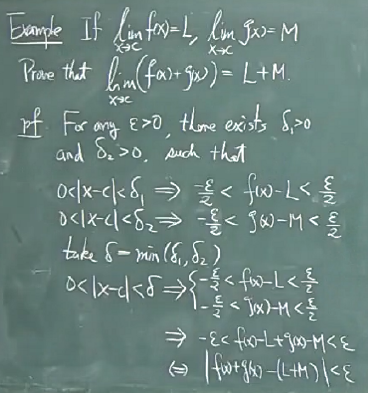 Example If lim f(x)=L, lim g(x)=M
x→c x→c
Prove that lim (f(x)+g(x)) = L+M.
x→c
pf. For any ε>0, there exists δ₁>0
and δ₂>0, such that
0<|x-c|<δ₁ ⇒ -ε/2 < f(x)-L < ε/2
0<|x-c|<δ₂ ⇒ -ε/2 < g(x)-M < ε/2
take δ=min(δ₁,δ₂)
0<|x-c|<δ ⇒ { -ε/2 < f(x)-L < ε/2
-ε/2 < g(x)-M < ε/2
⇒ -ε<f(x)-L+g(x)-M<ε
⇔ |f(x)+g(x)-(L+M)|<ε